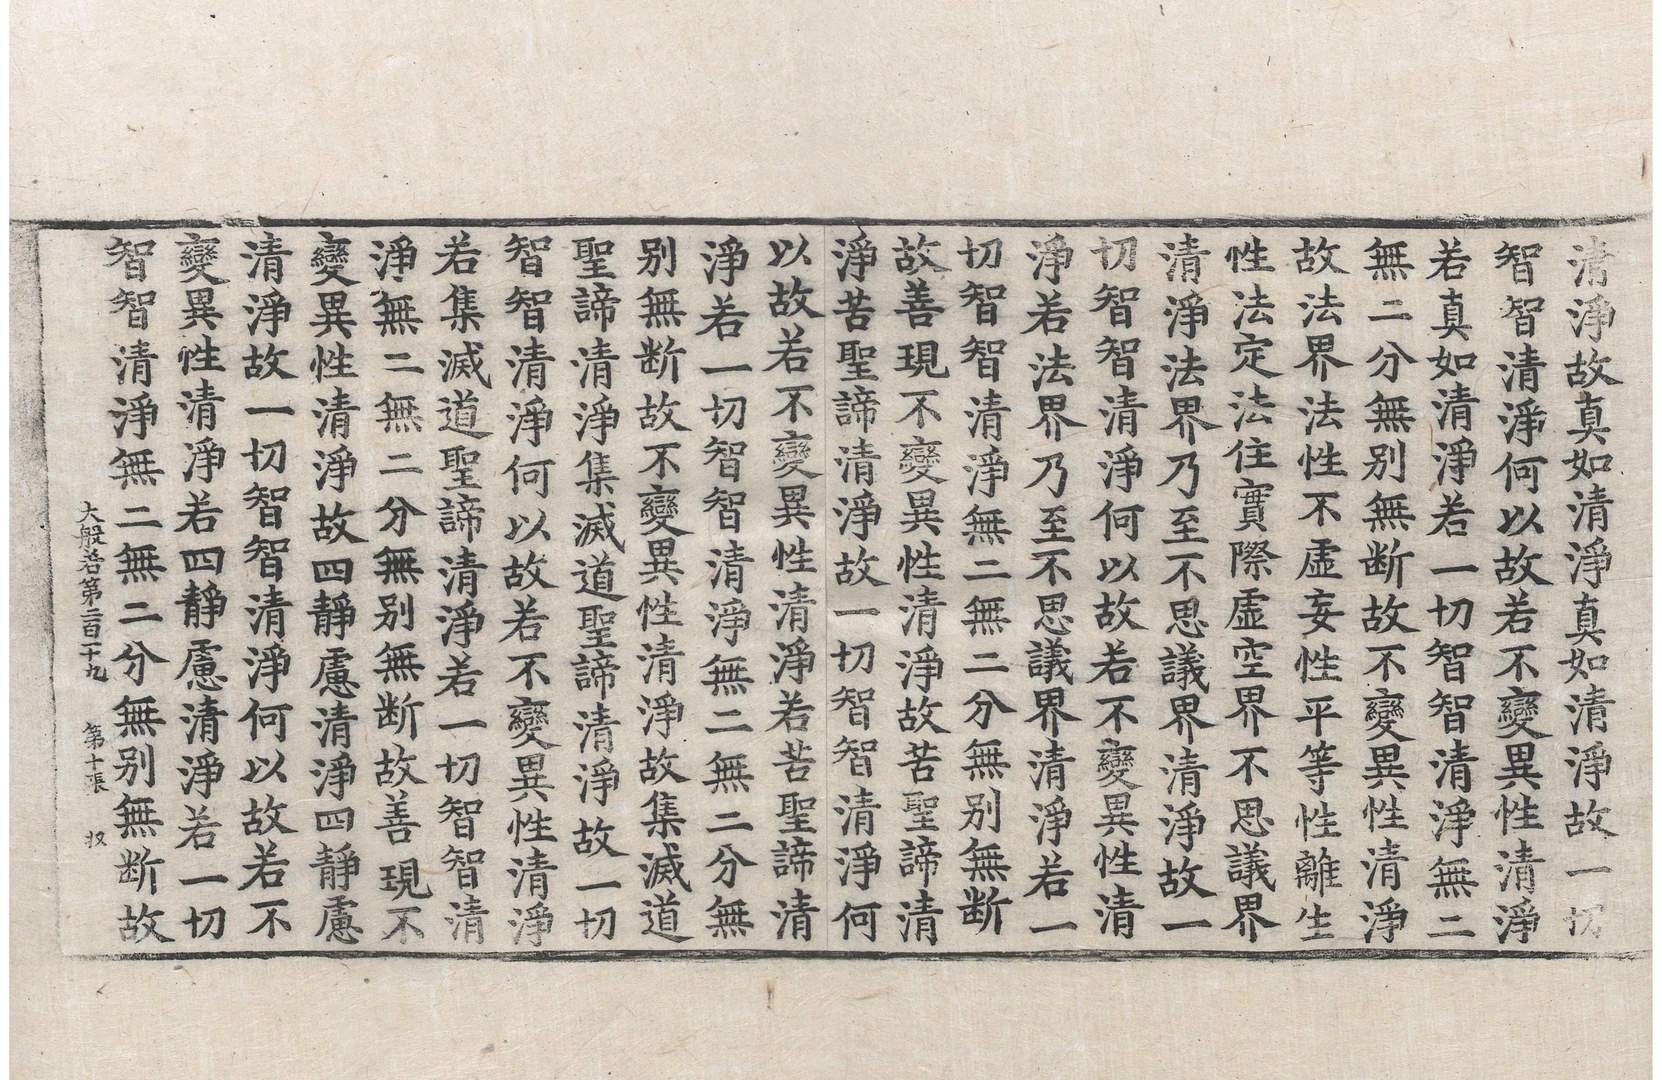 清淨故真如清淨真如清淨故一切
智智清淨何以故若不變異性清淨
若真如清淨若一切智智清淨無二
無二分無別無断故不變異性清淨
故法界法性不虛妄性平等性離生
性法定法住實際虛空界不思議界
清淨法界乃至不思議界清淨故一
切智智清淨何以故若不變異性清
淨若法界乃至不思議界清淨若一
切智智清淨無二無二分無別無断
故善現不變異性清淨故苦聖諦清
淨苦聖諦清淨故一切智智清淨何
以故若不變異性清淨若苦聖諦清
淨若一切智智清淨無二無二分無
別無断故不變異性清淨故集滅道
聖諦清淨集滅道聖諦清淨故一切
智智清淨何以故若不變異性清淨
若集滅道聖諦清淨若一切智智清
淨無二無二分無別無断故善現不
變異性清淨故四靜慮清淨四靜慮
清淨故一切智智清淨何以故若不
變異性清淨若四靜慮清淨若一切
智智清淨無二無二分無別無断故
大般若第二百十九 第十張 収